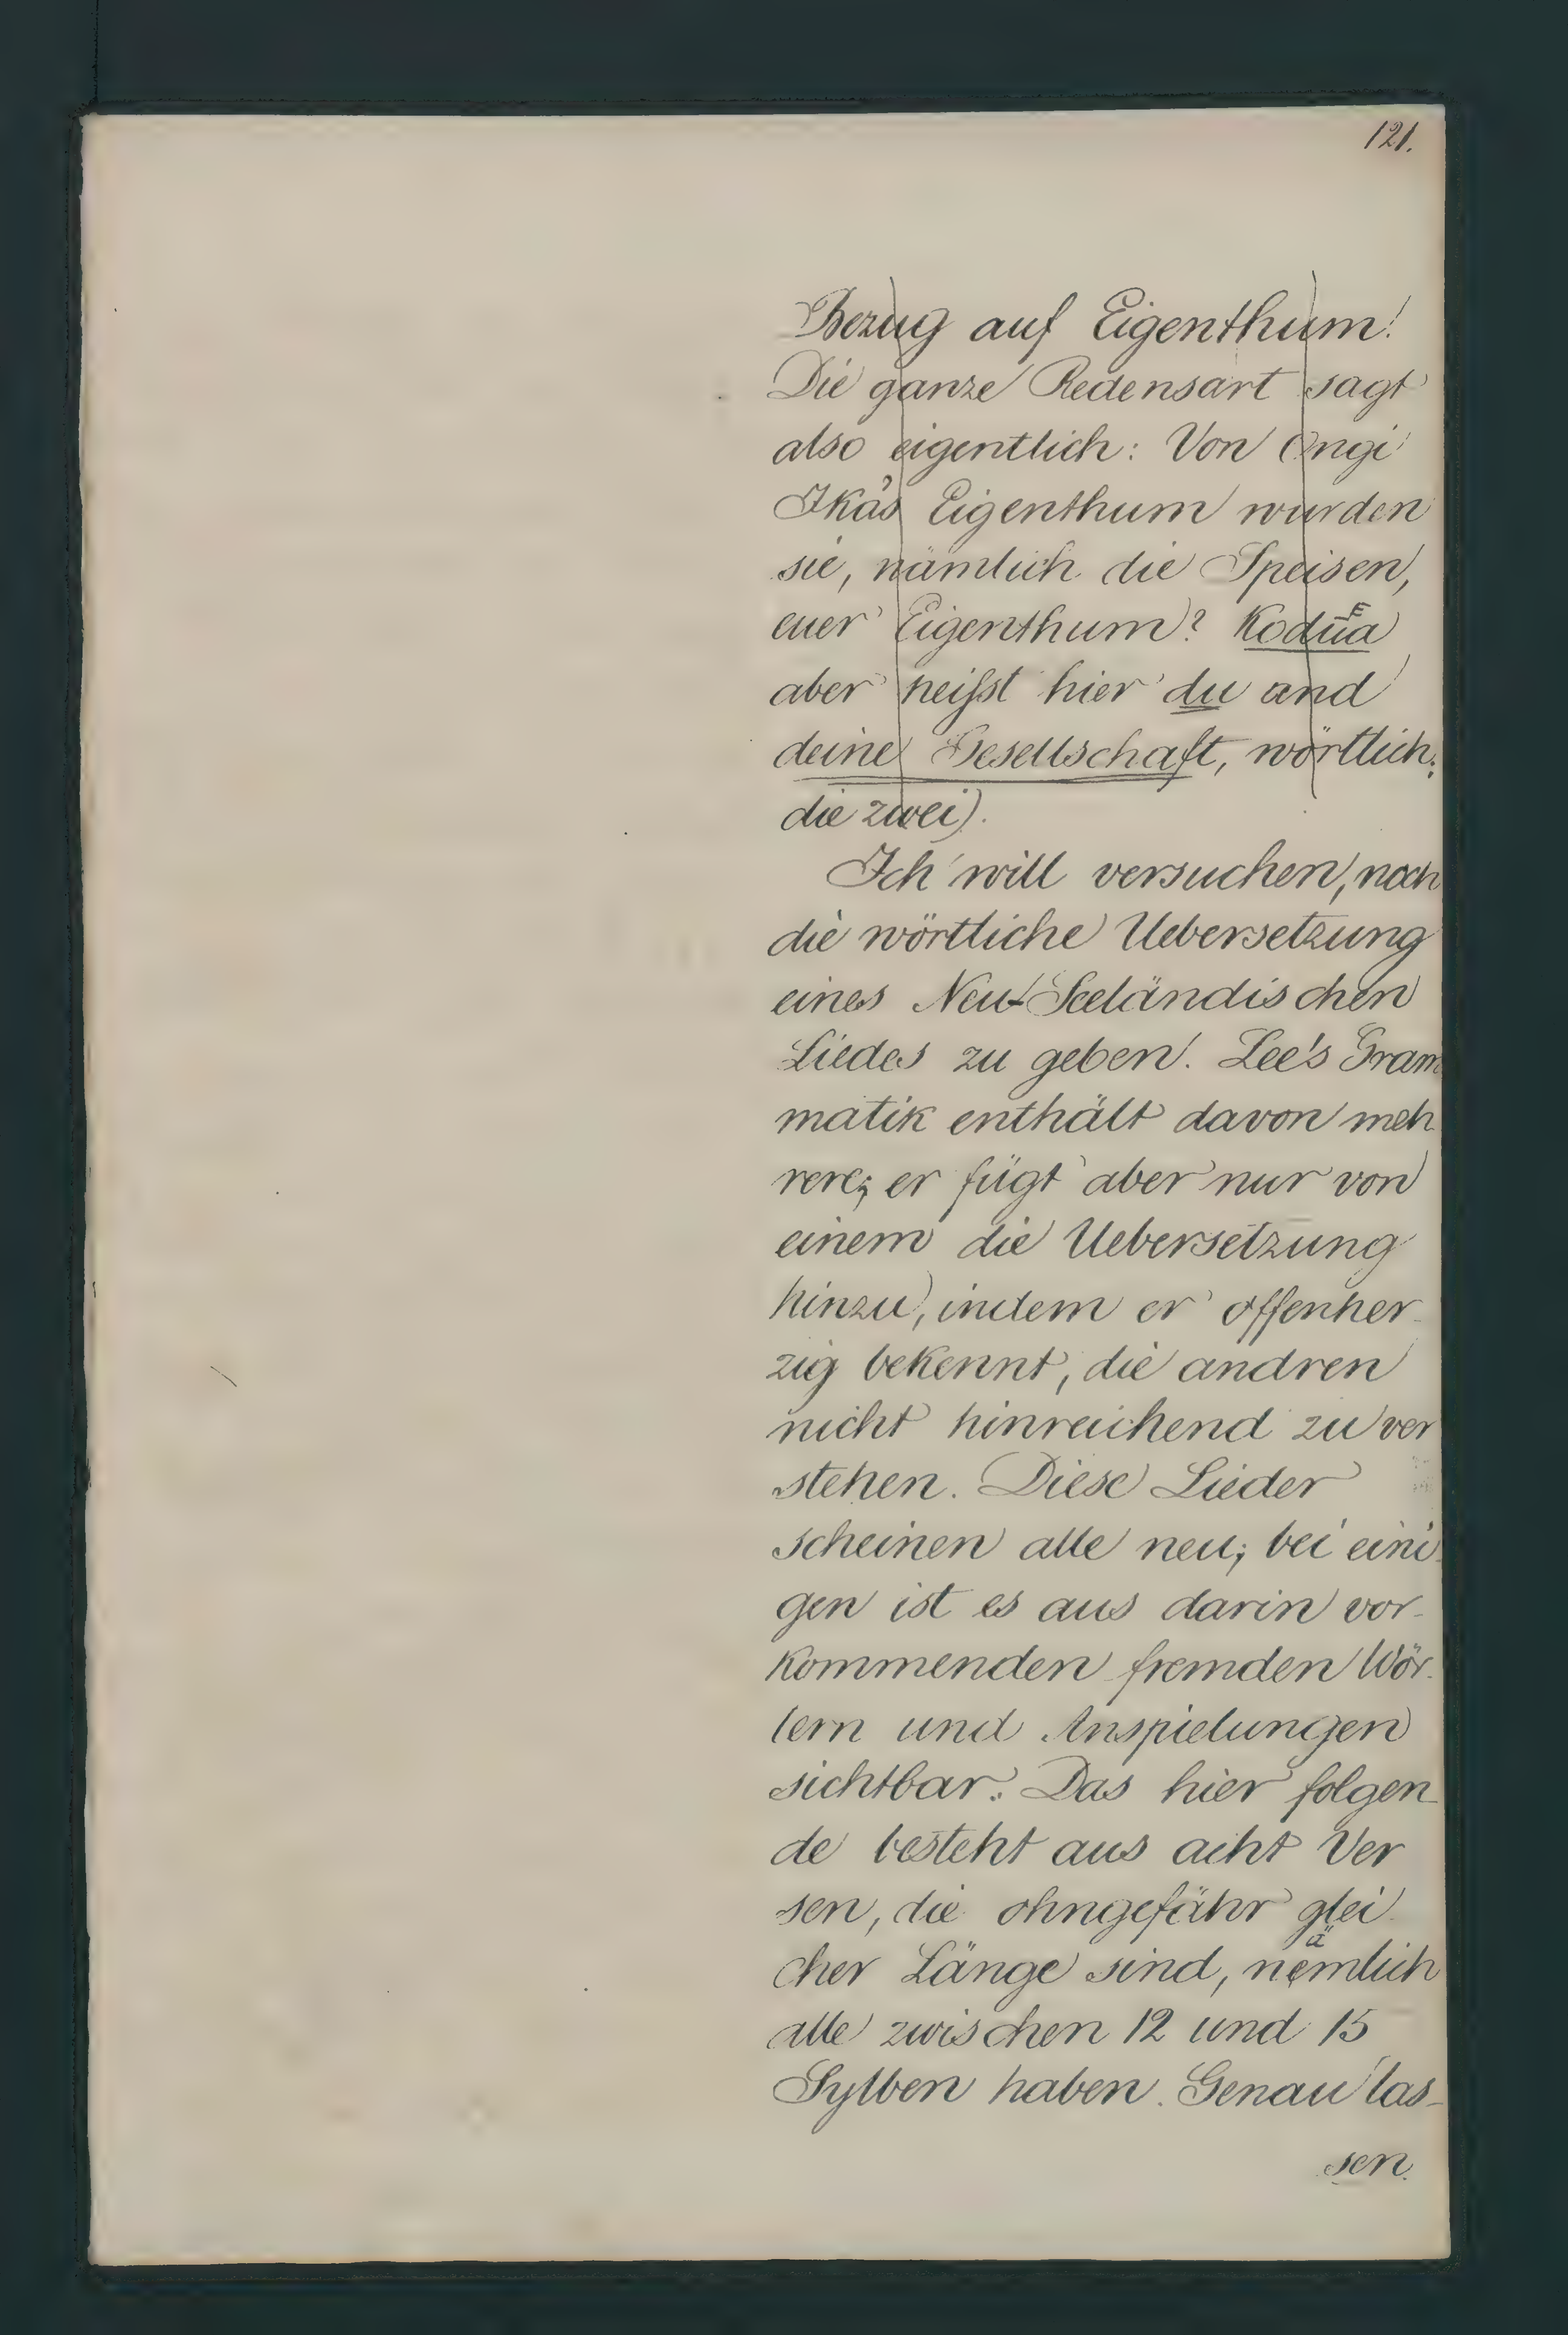 121.
Bezug auf Eigenthum!
Die ganze Redensart sagt
also eigentlich: Von Ongi
Ika's Eigenthum wurden
sie, nämlich die Speisen,
euer Eigenthum? Kodūa
aber heiſst hier du und
deine Gesellschaft, wörtlich:
die zwei).
Ich will versuchen, noch
die wörtliche Uebersetzung
eines Neu-Seeländischen
Liedes zu geben. Lee's Gram
matik enthält davon meh
rere; er fügt aber nur von
einem die Uebersetzung
hinzu, indem er offenher
zig bekennt, die andren
nicht hinreichend zu ver
stehen. Diese Lieder
scheinen alle neu; bei eini
gen ist es aus darin vor-
kommenden fremden Wör-
tern und Anspielungen
sichtbar. Das hier folgen
de besteht aus acht Ver
sen, die ohngefähr glei
cher Länge sind, nämlich
alle zwischen 12 und 15
Sylben haben. Genau las-
sen